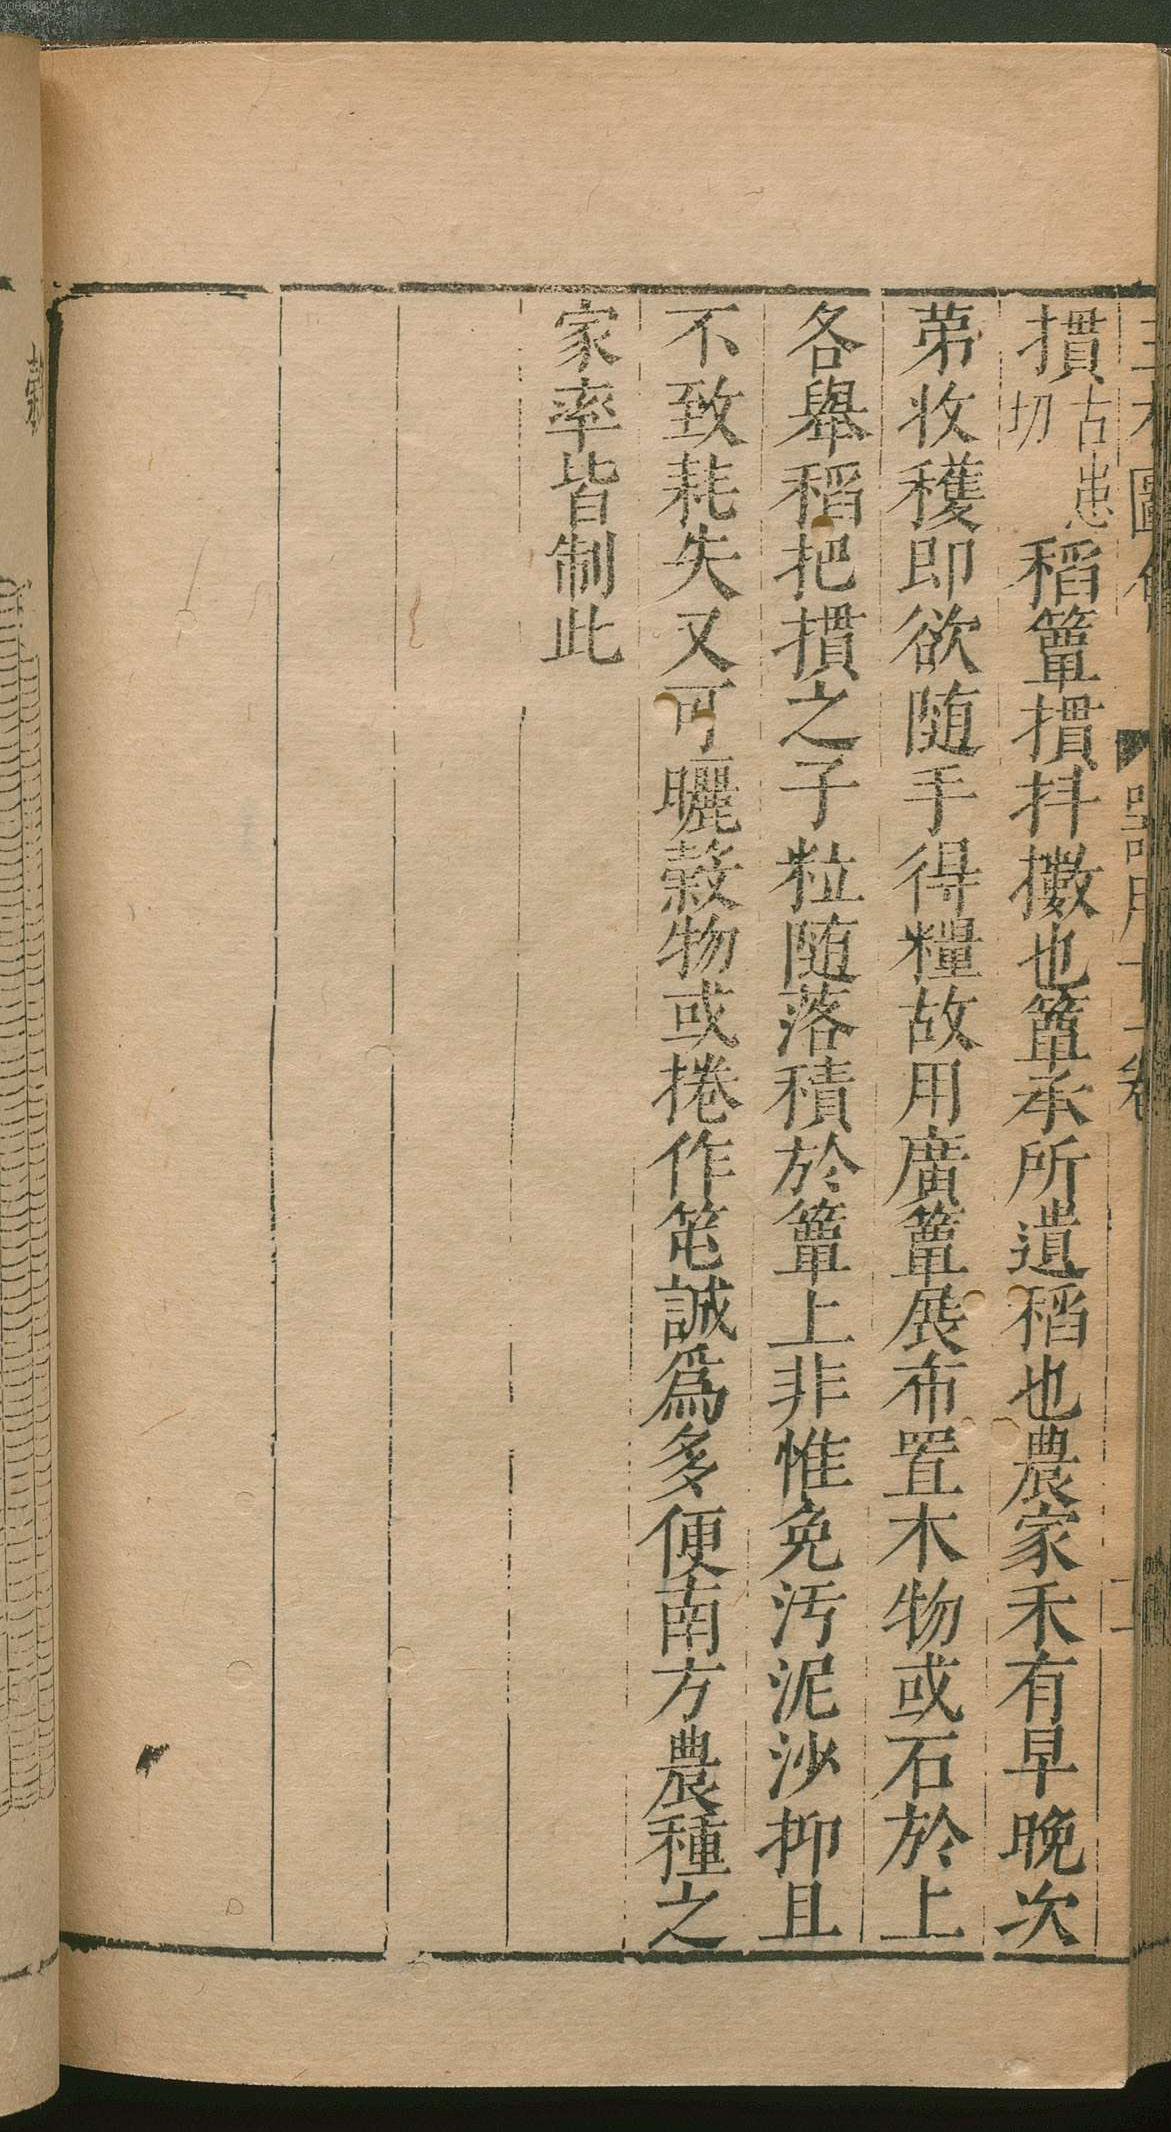 摜古患切稻簟摜抖擻也簟承所遺稻也農家禾有早晚次
苐收穫即欲随手得糧故用廣簟展布置木物或石於上
各舉稻把摜之子粒随落積於簟上非惟免汚泥沙抑且
不致耗失又可曬穀物或捲作笔誠爲多便南方農種之
家率皆制此